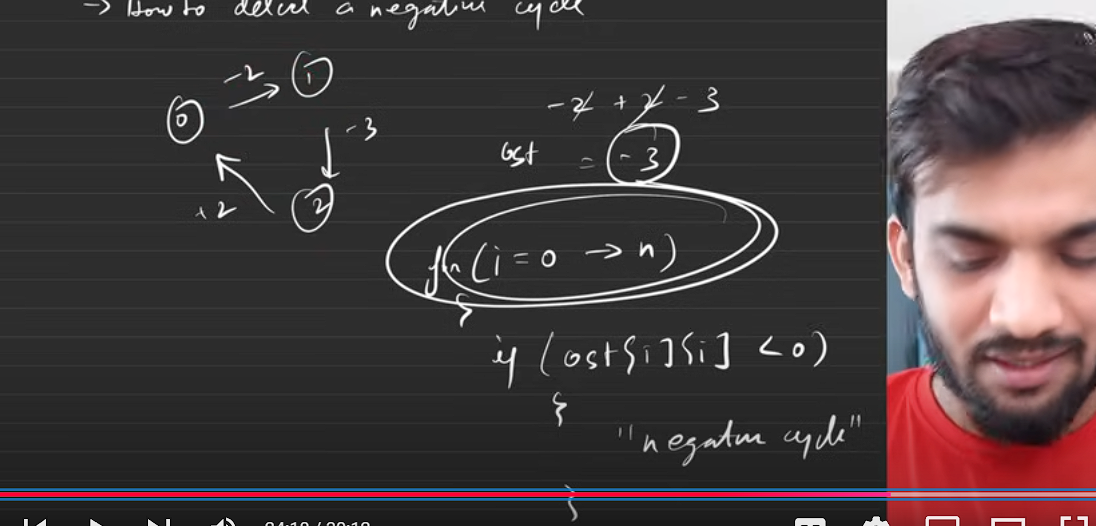 → How to detect a negative cycle
-2 1
0
-3
+2 2
-2 + 2 - 3
cost = -3
for (i = 0 → n)
{
if (cost[i][i] < 0)
{
"negative cycle"
}